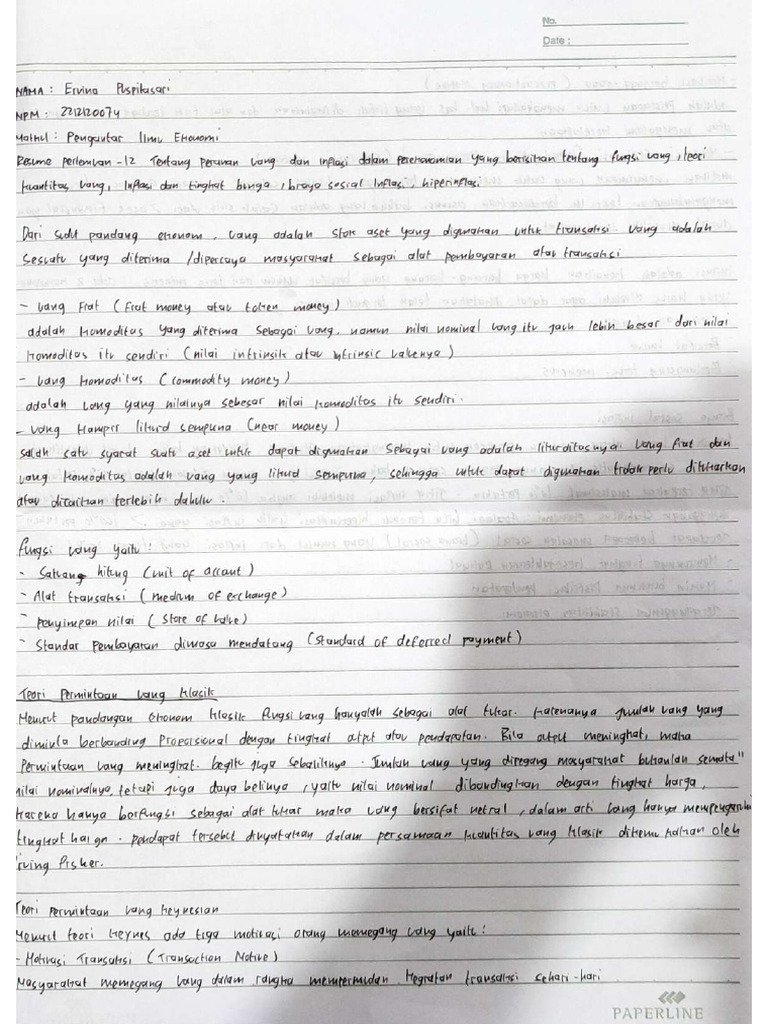 No.
Date :
NAMA : Ervina Puspitasari
NPM : 2212120074
Matkul : Pengantar Ilmu Ekonomi
Resume pertemuan -12 Tentang peranan uang dan inflasi dalam perekonomian yang berisikan tentang fungsi uang, teori
kuantitas uang, Inflasi dan tingkat bunga, biaya sosial Inflasi, hiperinflasi
Dari sudut pandang ekonom, uang adalah stok aset yang digunakan untuk transaksi. uang adalah
sesuatu yang diterima / dipercaya masyarakat sebagai alat pembayaran atau transaksi
- uang Fiat (Fiat money atau token money)
adalah komoditas yang diterima sebagai uang. namun nilai nominal uang itu jauh lebih besar dari nilai
komoditas itu sendiri (nilai intrinsik atau intrinsic valuenya)
- uang komoditas (commodity money)
adalah uang yang nilainya sebesar nilai komoditas itu sendiri.
- uang Hampir likuid sempurna (near money)
salah satu syarat suatu aset untuk dapat digunakan sebagai uang adalah likuiditasnya uang fiat dan
uang komoditas adalah uang yang likuid sempurna, sehingga untuk dapat digunakan tidak perlu ditukarkan
atau dicairkan terlebih dahulu.
Fungsi uang yaitu :
- Satuang hitung (unit of account)
- Alat transaksi (medium of exchange)
- penyimpan nilai (store of value)
- Standar pembayaran dimasa mendatang (Standard of deferred payment)
Teori Permintaan uang klasik
Menurut pandangan ekonom klasik fungsi uang hanyalah sebagai alat tukar. karenanya jumlah uang yang
diminta berbanding proporsional dengan tingkat output atau pendapatan. Bila output meningkat, maka
permintaan uang meningkat. begitu juga sebaliknya. Jumlah uang yang dipegang masyarakat bukanlah semata"
nilai nominalnya, tetapi juga daya belinya, yaitu nilai nominal dibandingkan dengan tingkat harga,
karena hanya berfungsi sebagai alat tukar maka uang bersifat netral, dalam arti uang hanya mempengaruhi
tingkat harga. pendapat tersebut dinyatakan dalam persamaan kuantitas uang klasik dikemukakan oleh
Irving Fisher.
Teori permintaan uang keynesian
Menurut teori keynes ada tiga motivasi orang memegang uang yaitu :
- Motivasi Transaksi (Transaction Motive)
Masyarakat memegang uang dalam rangka mempermudah kegiatan transaksi sehari-hari
PAPERLINE